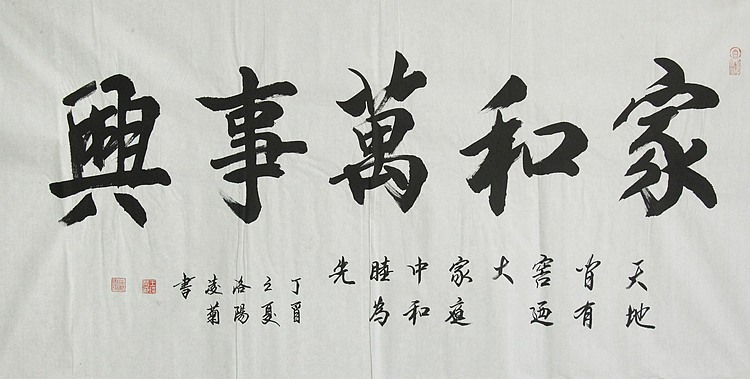 家和萬事興
天地
皆有
容迺
大
家庭
中和
睦為
先
丁酉
立夏
洛陽
凌菊
書